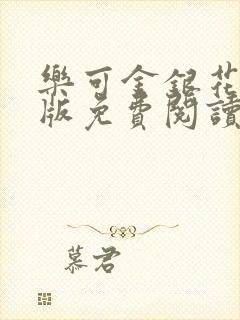 樂可金銀花
版免費閱讀
慕君